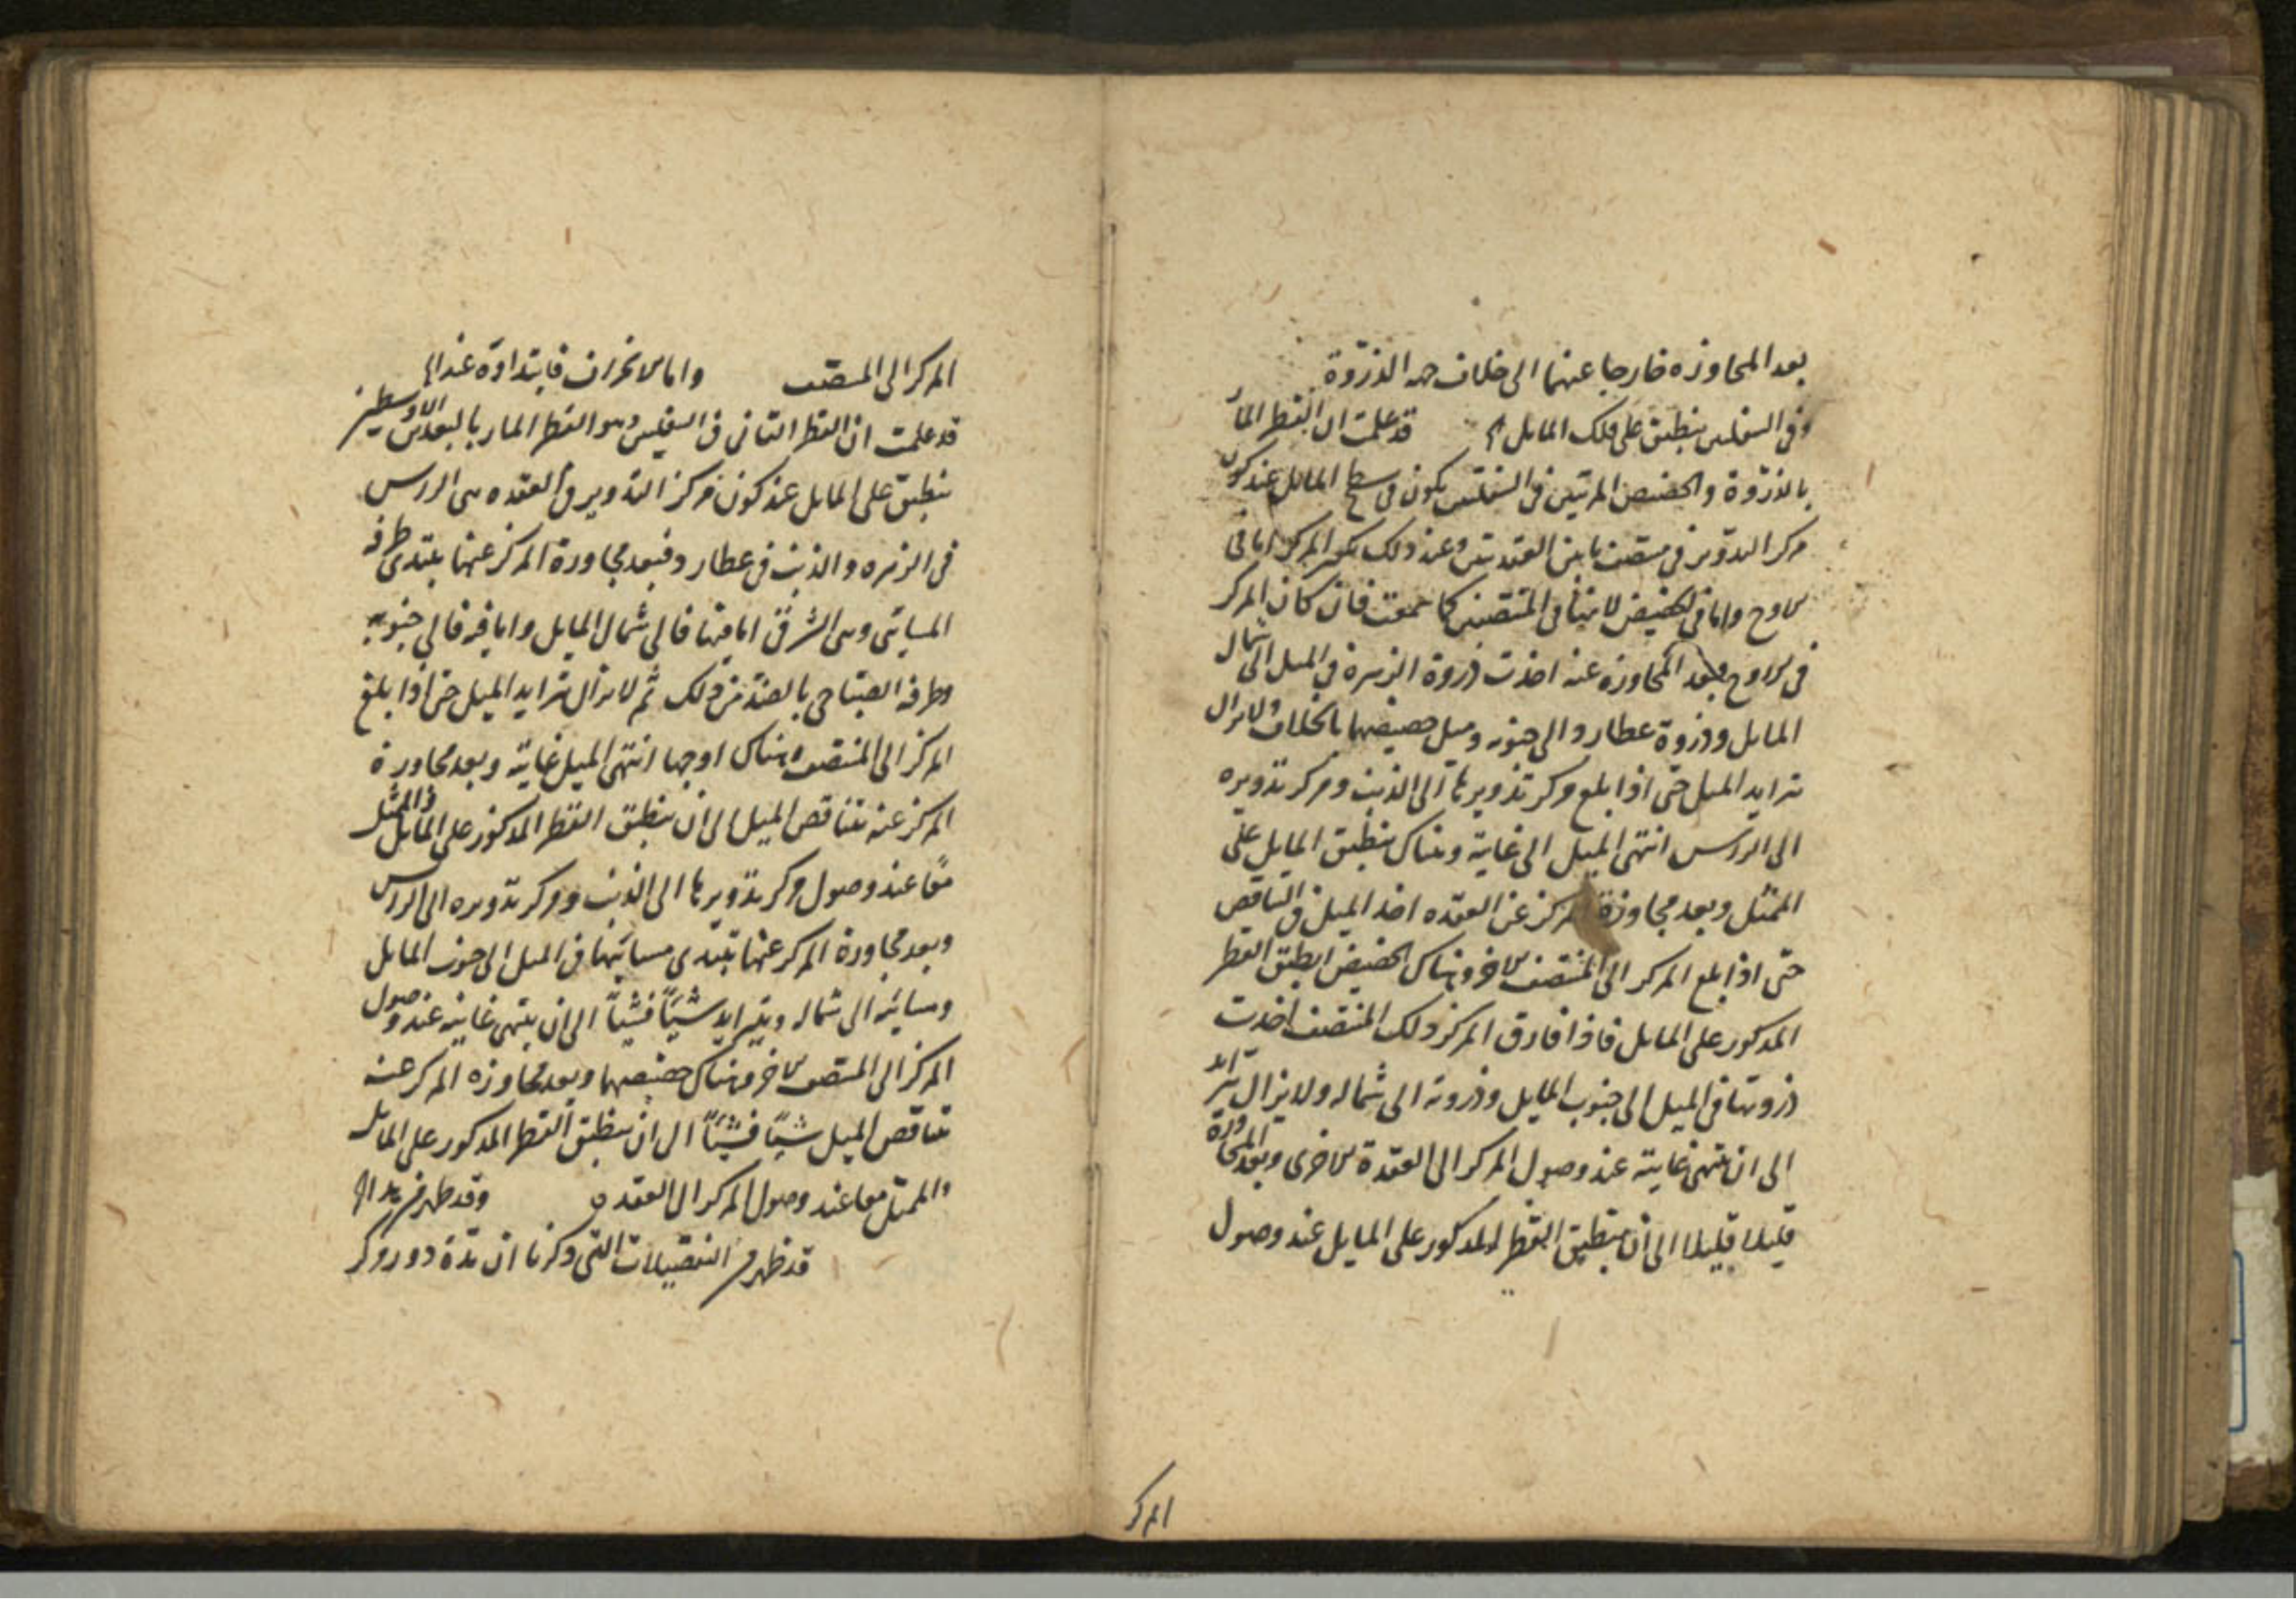 بعد المجاوزه خارجا عنهما الى خلاف جهه الذروة
وفى السفليين ينطبق على فلك المايل قد علمت ان القطر المار
بالذروة والحضيض المرئيين فى السفليين يكون فى سطح المايل عند كون
مركز التدوير فى منتصف ما بين العقدتين وعند ذلك يكون المركز اما فى
الاوج واما فى الحضيض لانهما فى المنتصفين كما سمعت فان كان المركز
فى الاوج فبعد المجاوزه عنه اخذت ذروة الزهرة فى الميل الى شمال
المايل وذروة عطارد الى جنوبه وميل حضيضهما بالخلاف ولا يزال
يتزايد الميل حتى اذا بلغ مركز تدويرها الى الذنب ومركز تدويره
الى الراس انتهى الميل الى غايته وهناك ينطبق المايل على
الممثل وبعد مجاوزة المركز عن العقده اخذ الميل فى التناقص
حتى اذا بلغ المركز الى المنتصف الاخر وهناك الحضيض انطبق القطر
المذكور على المايل فاذا فارق المركز ذلك المنتصف اخذت
ذروتها فى الميل الى جنوب المايل وذروته الى شماله ولا يزال يتزايد
الى ان ينتهى غايته عند وصول المركز الى العقدة الاخرى وبعد المجاوزة
قليلا قليلا الى ان ينطبق القطر المذكور على المايل عند وصول
المركز
المركز الى المنتصف واما الانحراف فابتداؤه عند
قد علمت ان القطر الثانى فى السفليين وهو القطر المار بالبعدين الاوسطين
ينطبق على المايل عند كون مركز التدوير فى العقده هى الراس
فى الزهره والذنب فى عطارد فبعد مجاوزة المركز عنها يبتدى طرفه
المسائى وهى الشرقى اما فيها فالى شمال المايل واما فيه فالى جنوبه
وطرفه الصباحى بالضد من ذلك ثم لا يزال يتزايد الميل حتى اذا بلغ
المركز الى المنتصف وهناك اوجها انتهى الميل غايته وبعد مجاوزة
المركز عنه يتناقص الميل الى ان ينطبق القطر المذكور على المايل والممثل
معا عند وصول مركز تدويرها الى الذنب ومركز تدويره الى الراس
وبعد مجاوزة المركز عنها يبتدى مسائيها فى الميل الى جنوب المايل
ومسائيه الى شماله ويتزايد شيئا فشيئا الى ان ينتهى غايته عند وصول
المركز الى المنتصف الاخر وهناك حضيضهما وبعد مجاوزه المركز عنه
يتناقص الميل شيئا فشيئا الى ان ينطبق القطر المذكور على المايل
والممثل معا عند وصول المركز الى العقده وقد ظهر من هذا
قد ظهر من التفصيلات التى ذكرنا ان مدة دور مركز